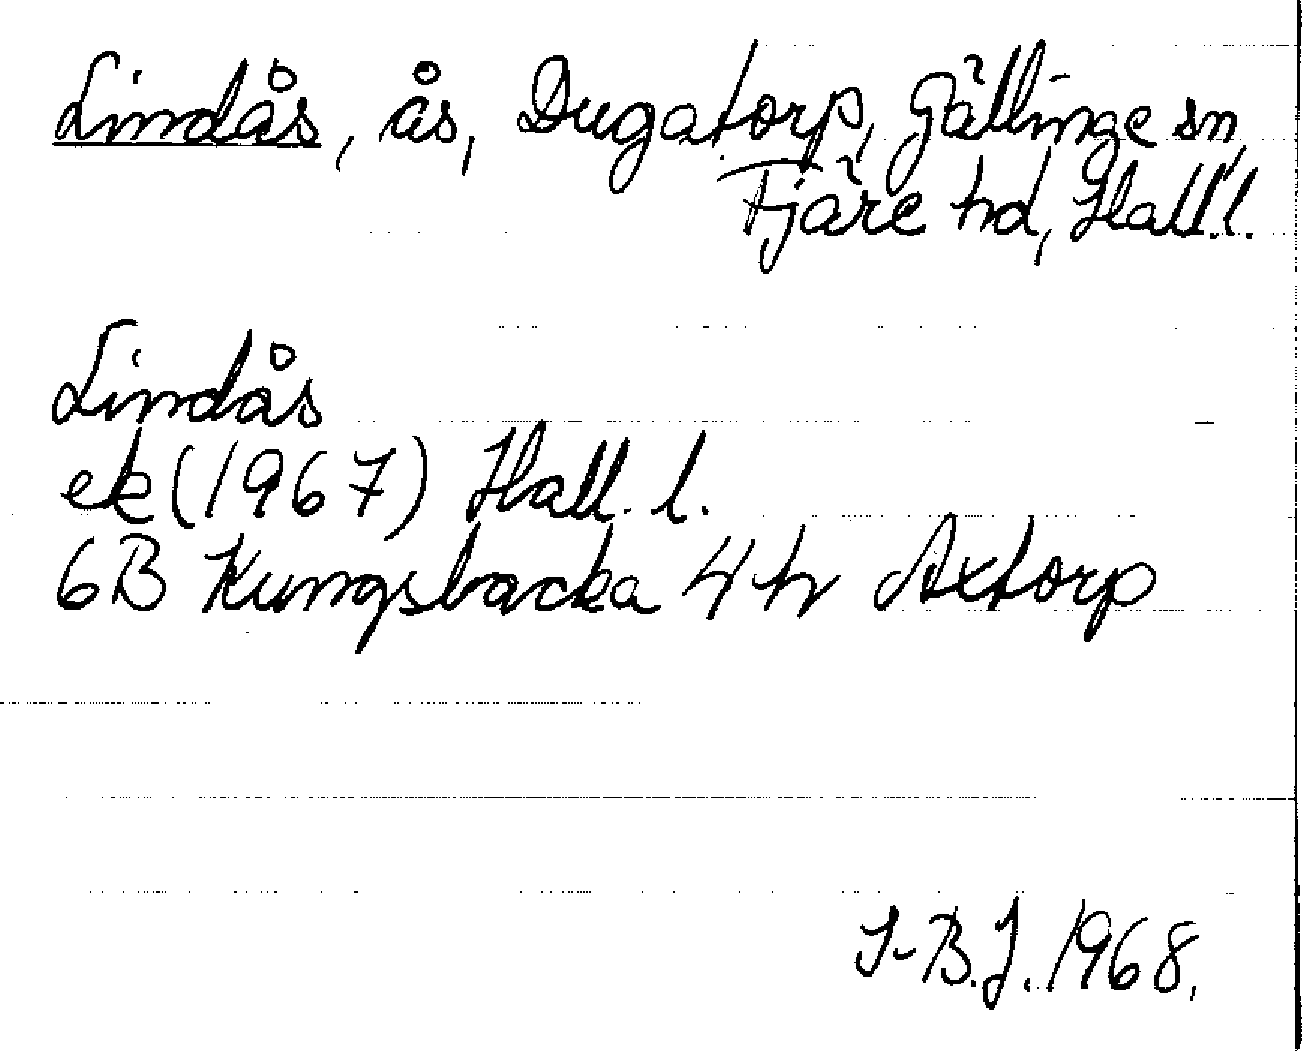 Lindås, ås, Dugatorp, Gällinge sn,
Fjäre hd, Hall.l.
Lindås
ek (1967) Hall. l.
6B Kungsbacka 4 h Axtorp
I-B.J. 1968.